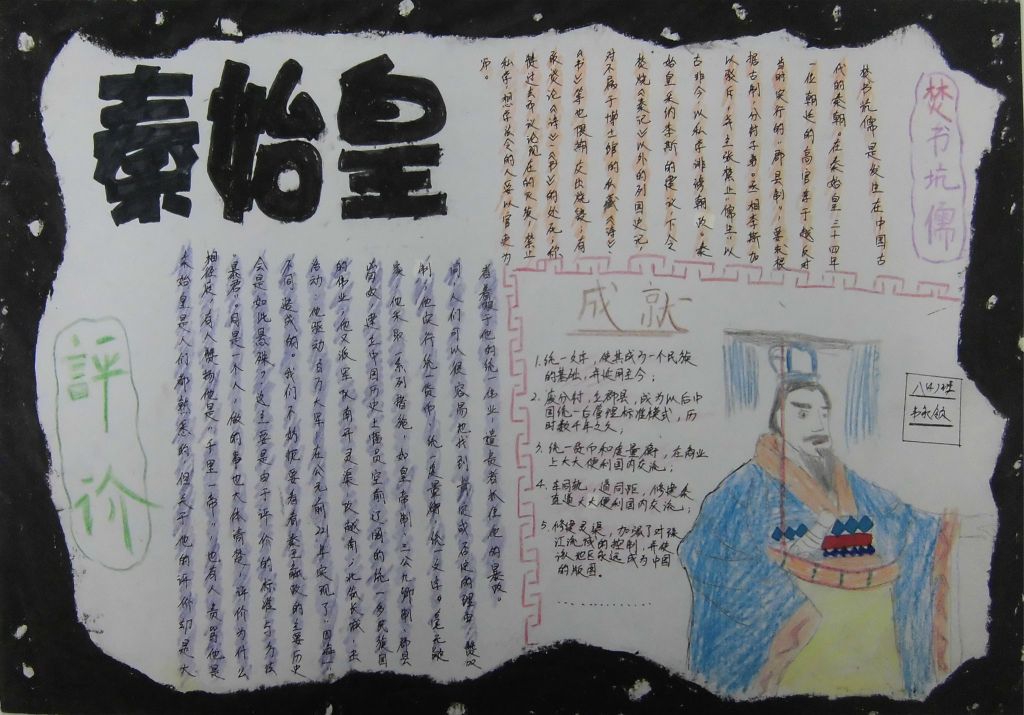 秦始皇
焚书坑儒
焚书坑儒,是发生在中国古
代的秦朝。在秦始皇三十四年
一位朝廷的高官淳于越反对
当时实行的“郡县制”,要求根
据古制,分封子弟。丞相李斯加
以驳斥,并主张禁止“儒生”以
古非今,以私学诽谤朝政。秦
始皇采纳李斯的建议,下令
焚烧《秦记》以外的列国史记,
对不属于博士馆的私藏《诗》、
《书》等也限期交出烧毁;有
敢谈论《诗》《书》的处死,称
赞过去而议论现在的灭族;禁止
私学,想学法令的人要以官吏为
师。
評价
秦始皇是人们都熟悉的,但关于他的评价却是大
相径庭,有人赞扬他是“千里一帝”,也有人责骂他是
“暴君”。同是一个人,做的事也大体清楚,评价为什么
会是如此悬殊?这主要是由于评价的标准与方法
不同造成的。我们不妨扼要看看秦王嬴政的主要历史
活动:他驱动百万大军,在公元前221年实现了
的伟业,他又派军队南开灵渠,攻越南,北筑长城,击
匈奴,建立中国历史上幅员空前辽阔的统一多民族国
家,他采取一系列措施,如皇帝制、三公九卿制、郡县
制,他实行统一货币,统一度量衡,统一文字。毫无疑
问,人们可以很容易地找到肯定或否定的理由:赞叹
者着眼于他的统一伟业,谴责者抓住他的暴政。
成就
1.统一文字,使其成为一个民族
的基础,并使用至今;
2.废分封,立郡县,成为以后中
国统一后管理标准模式,历
时数千年之久;
3.统一货币和度量衡,在商业
上大大便利国内交流;
4.车同轨,道同距,修建秦
直道大大便利国内交流;
5.修建灵渠,加强了对珠
江流域的控制,并使
该地区永远成为中国
的版图。
……………
八(4)班